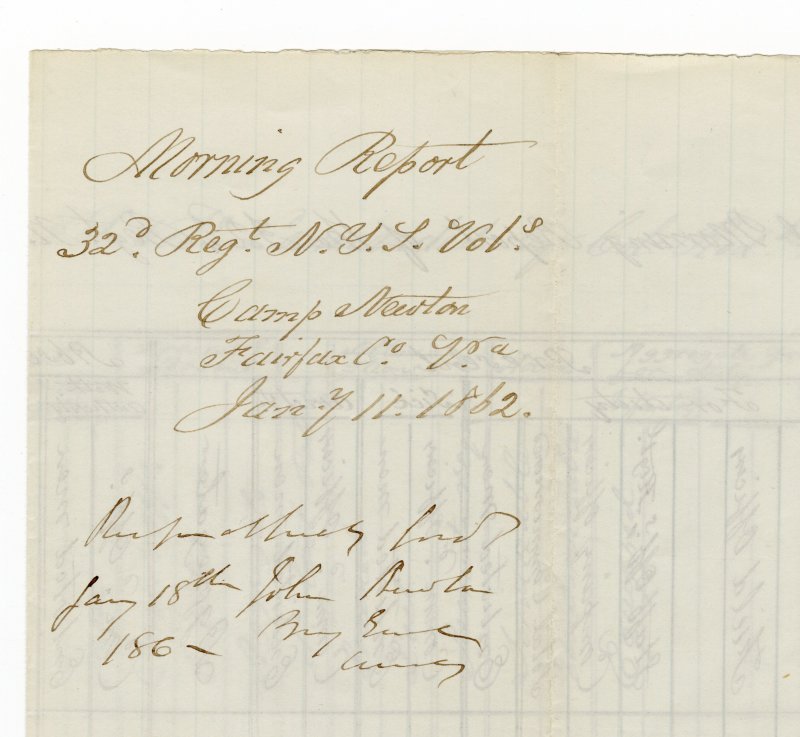 Morning Report
32d. Regt. N.Y.S. Vols.
Camp Newton
Fairfax Co. Va
Jany 11. 1862.
Respectfully fwd
Jany 18th John Newton
186 Brig Genl